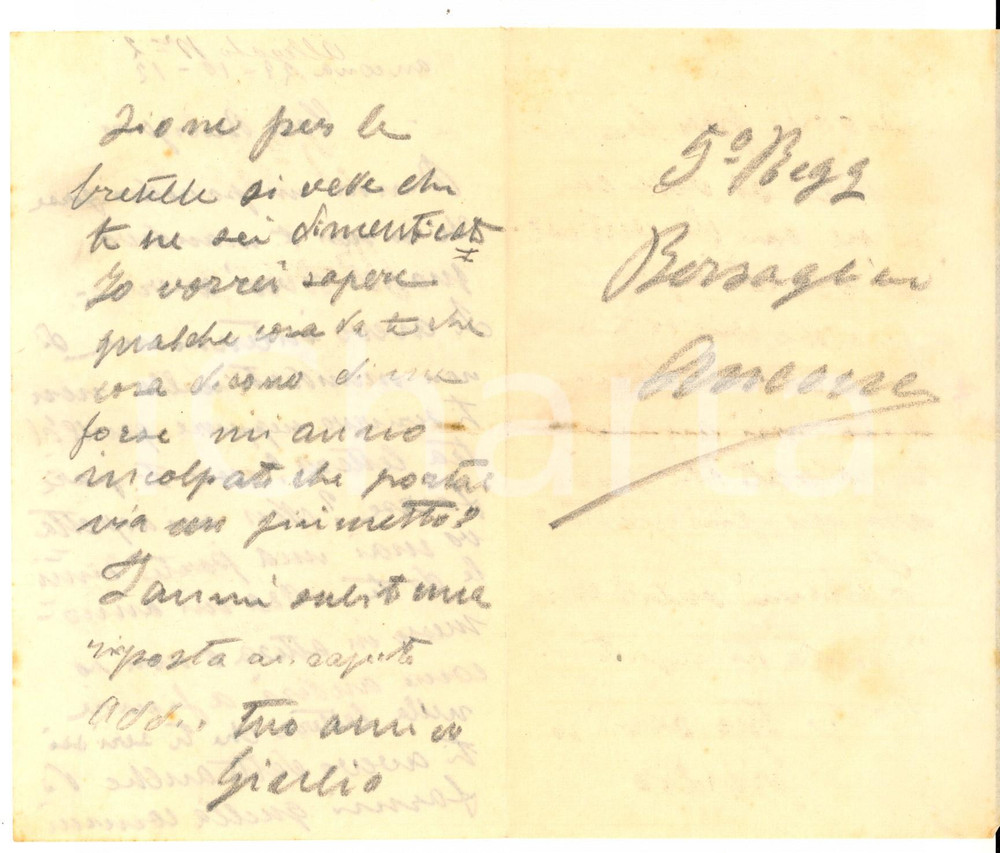 zione per le
bretelle si vede che
te ne sei dimenticato
Io vorrei sapere
qualche cosa da te che
cosa dicono di me
forse mi anno
incolpato che portai
via un giumetto?
Fammi subito una
risposta ai capito
Addio tuo amico
Giulio
5º Regg
Bersaglieri
Ancona